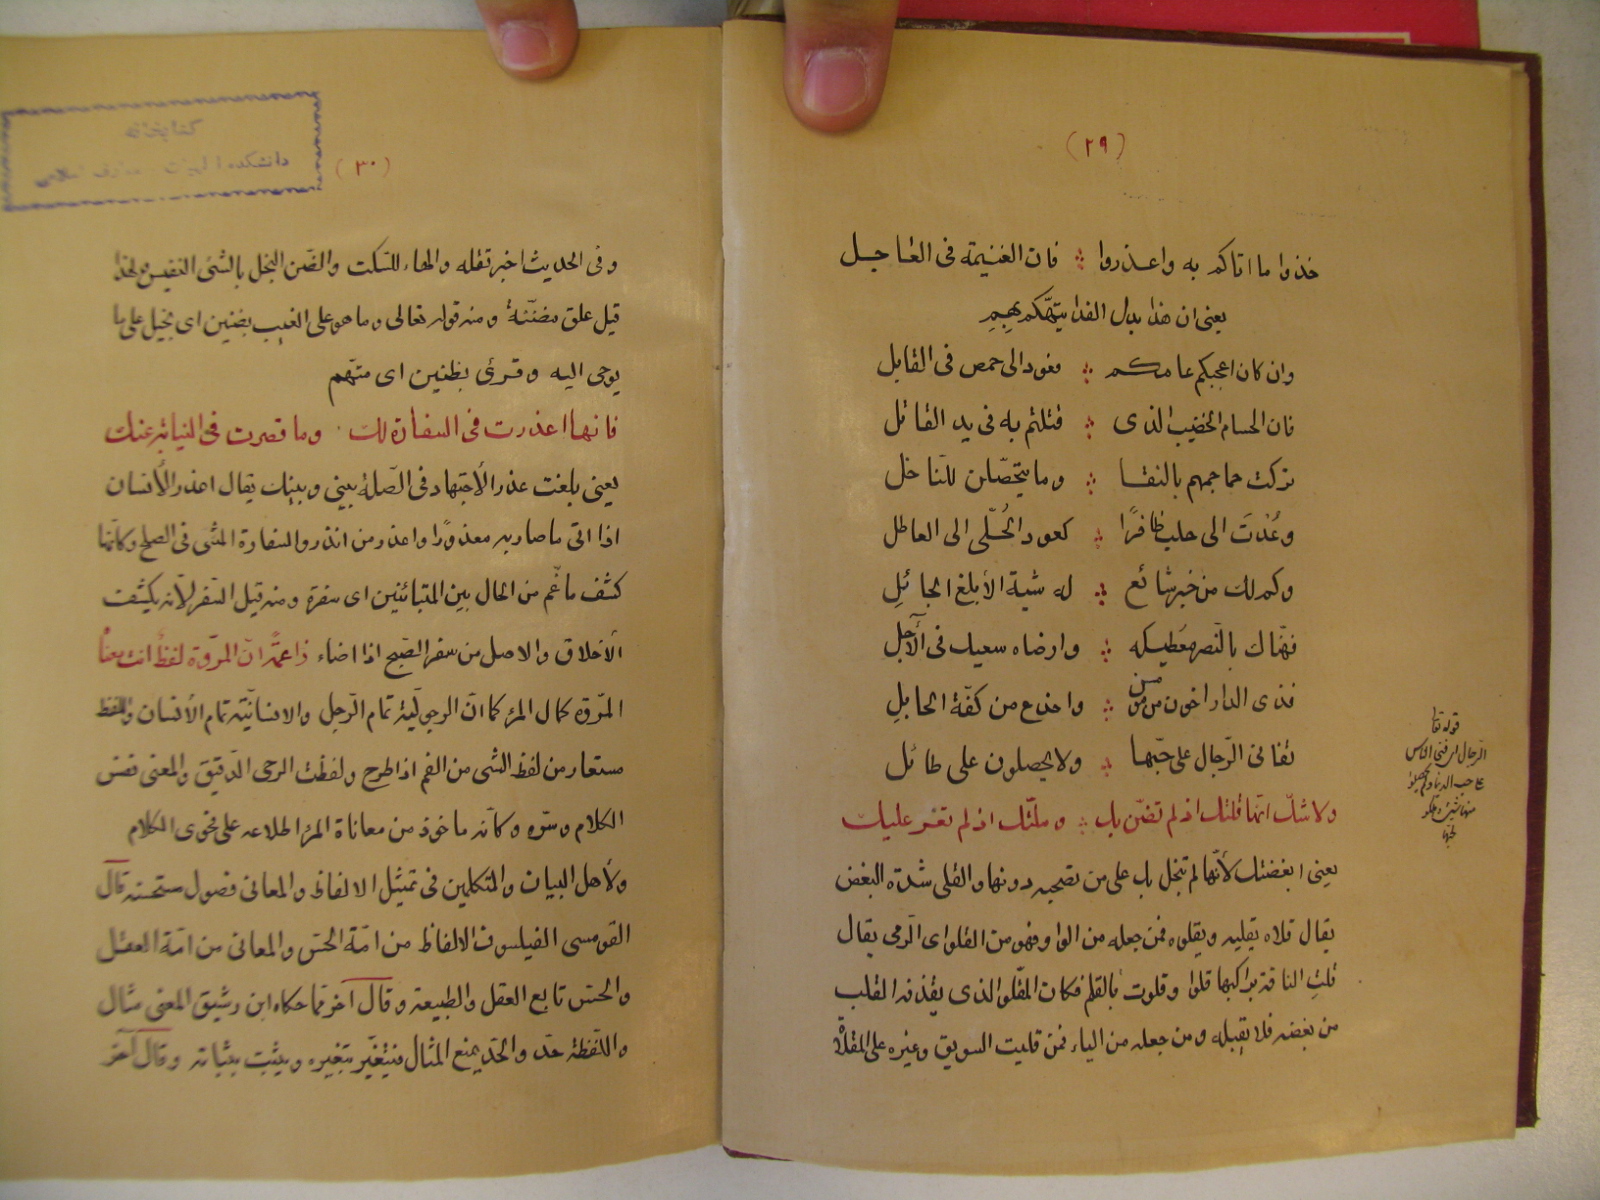 (٢٩)
خذوا ما اتاكم به واعذروا فان الغنيمة فى العاجل
يعنى ان هذا بدل الفدا يتهكم بهم
وان كان اعجبكم عامكم فعودوا الى حمص فى القابل
فان الحسام الخضيب الذى قتلتم به فى يد القاتل
تركت جماجمهم بالنقا وما يتحصلن للناخل
وعُدتَ الى حلب ظافرًا كعود الحُلّى الى العاطل
وكم لك من خبر شائع له شية الأبلغ الجائلِ
فهناك بالنصر معطيكه وارضاه سعيك فى الآجل
فذى الدار اخون من مومس واخدع من كفّة الحابلِ
تفانى الرّجال على حبّها ولا يحصلون على طائل
ولا شكّ انّها قلتك اذ لم تضنّ بك وملّتك اذ لم تغر عليك
يعنى ابغضتك لأنّها لم تبخل بك على من تصحبه دونها والقلى شدة البغض
يقال قلاه يقليه ويقلوه فمن جعله من الواو فهو من القلو اى الرمى يقال
قلتِ الناقة براكبها قلوا وقلوت بالقلة فكان المقلو الذى يقذفه القلب
من بغضه فلا يقبله ومن جعله من الياء فمن قليت السويق وغيره على المقلاة
قوله تفا
الرجال اى فنى الناس
على حب الدنيا ولم يحصلوا
(٣٠)
كتابخانه
دانشكده الهيات و معارف اسلامى
وفى الحديث اخبر تقله والهاء للسّكت والضّن البخل بالشئ النفيس ولهذا
قيل علق مضنّنة ومنه قوله تعالى وما هو على الغيب بضنين اى بخيل على ما
يوحى اليه وقرئ بظنين اى متّهم
فانها اعذرت فى السفارة لك وما قصرت فى النيابة عنك
يعنى بلغت عذر الأجتهاد فى الصّلة بينى وبينك يقال اعذر الأنسان
اذا اتى ما صار به معذورًا واعذر من انذر والسفارة المشى فى الصلح وكانها
كشف ما غم من الحال بين المتبائنين اى سفرة ومنه قيل السّفر لأنه يكشف
الأخلاق والاصل من سفر الصّبح اذا اضاء زاعمة انّ المروّة لفظ انت معناه
المروّة كمال المرء كما انّ الرجوليّة تمام الرّجل والانسانيّة تمام الأنسان واللفظ
مستعار من لفظ الشئ من الفم اذا طرح ولفظت الرحى الدّقيق والمعنى فصّ
الكلام وسرّه وكانه ماخوذ من معاناة المرء اطلاعه على فحوى الكلام
ولأهل البيان والمتكلمين فى تمثيل الالفاظ والمعانى فصول مستحسنه قال
القومسى الفيلسوف الالفاظ من امّة الحسّ والمعانى من امّة العقل
والحسّ تابع العقل والطبيعة وقال آخر ممّا حكاه ابن رشيق المعنى مثال
واللّفظة حدّ والحدّ يمنع المثال فيتغيّر بتغيره ويثبت بثباته وقال آخر